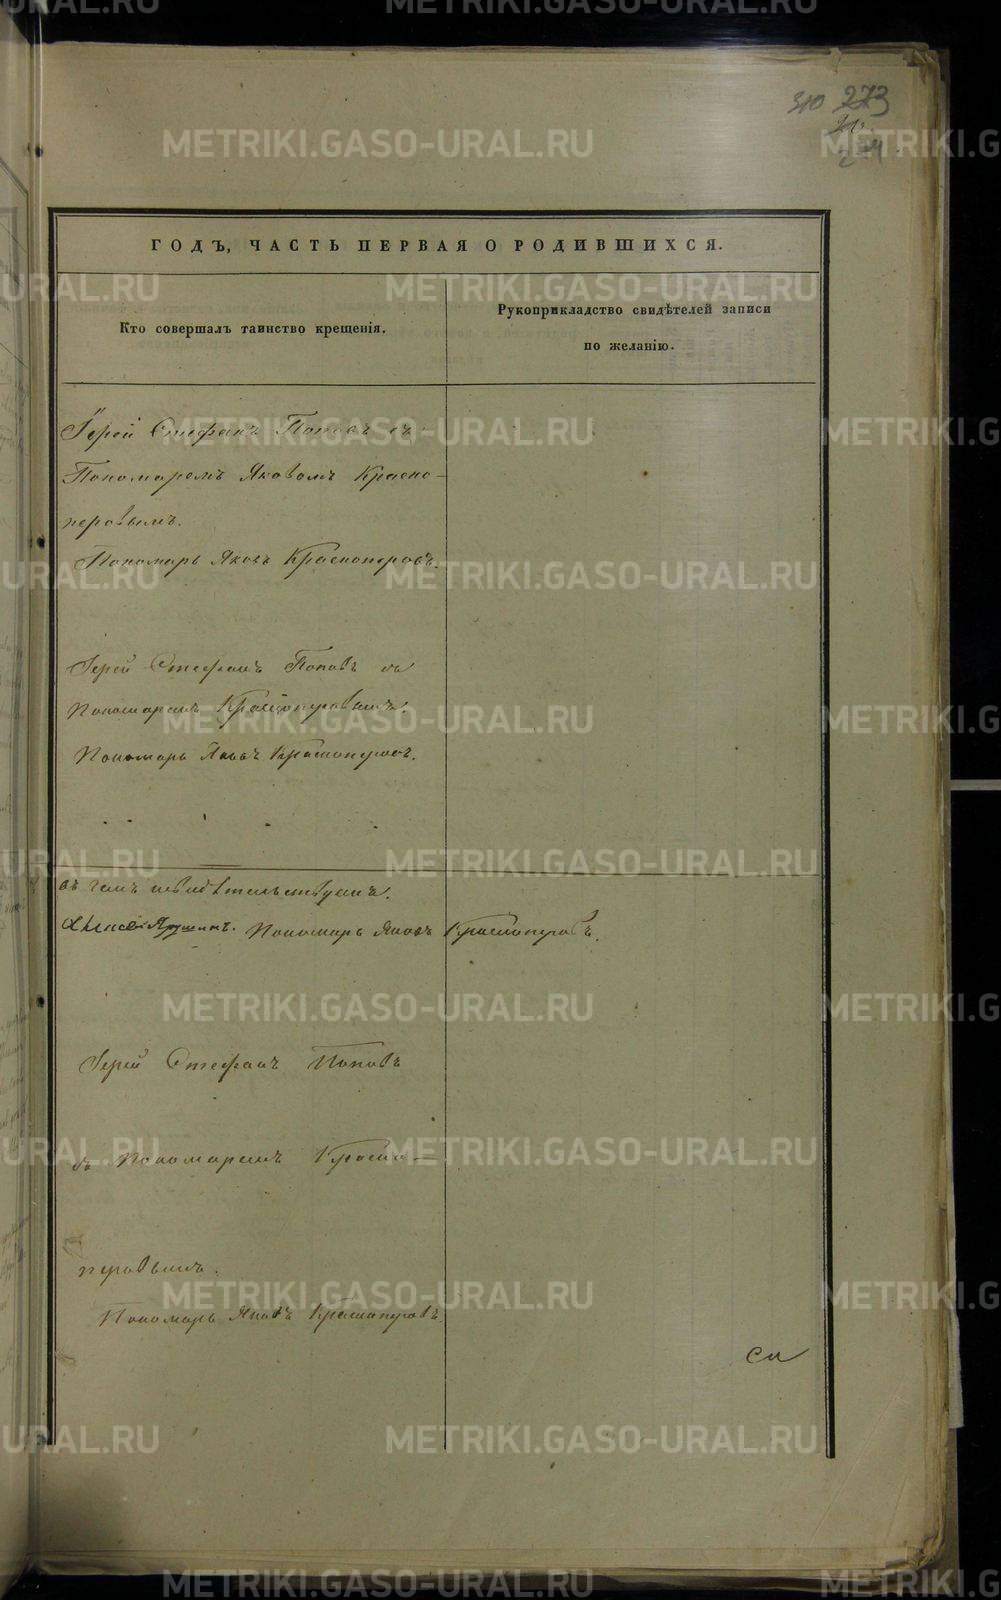 310 273
274
ГОДЪ, ЧАСТЬ ПЕРВАЯ О РОДИВШИХСЯ.
Кто совершалъ таинство крещенія.
Рукоприкладство свидѣтелей записи
по желанію.
Іерей Стефанъ Поповъ съ
Пономаремъ Яковомъ Красно-
перовымъ.
Пономарь Яковъ Красноперовъ.
Іерей Стефанъ Поповъ съ
Пономаремъ Красноперовымъ.
Пономарь Яковъ Красноперовъ.
въ чемъ и свидѣтельствуемъ.
Пономарь Яковъ Красноперовъ.
Іерей Стефанъ Поповъ
съ Пономаремъ Красно-
перовымъ.
Пономарь Яковъ Красноперовъ
METRIKI.GASO-URAL.RU